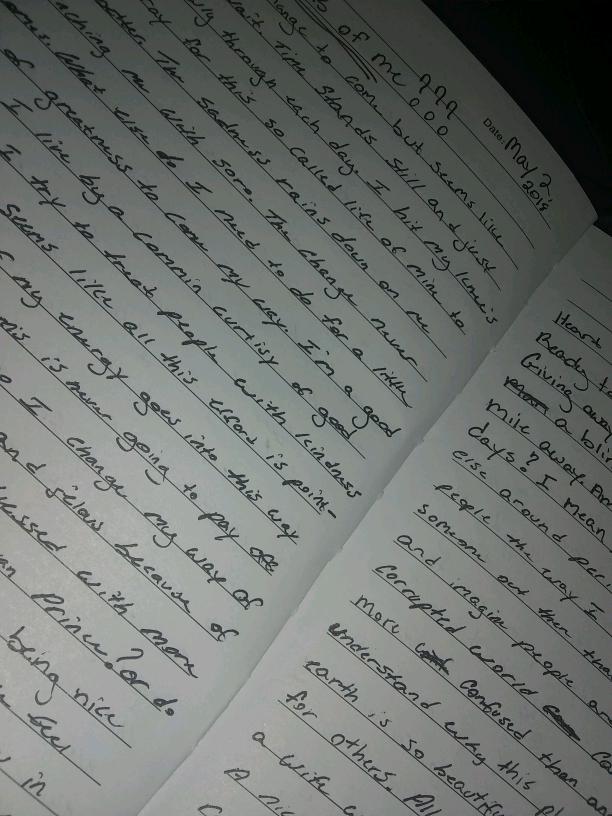 Date: May 2
2018
of me ???
ange to com but seems like
wait. Time stands still and just
through each day. I hit my knee's
ray for this so called life of mine to
The sadness rains down on me
aching me with sore. The change never
What else do I need to do for a little
of greatness to come my way. I'm a good
I live by a commin curtisy of good
I try to treat people with kindness
seems like all this effort is point-
my energy goes into this way
is never going to pay off
I change my way of
and jelous because of
with more
Prince? or do
being nice
in
Heart
Ready to
Giving away
a bli
mile away. Am
days? I mean
else around per
people the way I
someone out there tha
and imagin people a
corrupted world
more confused than an
understand why this pl
earth is so beautifu
for others. All
a wife
A nic